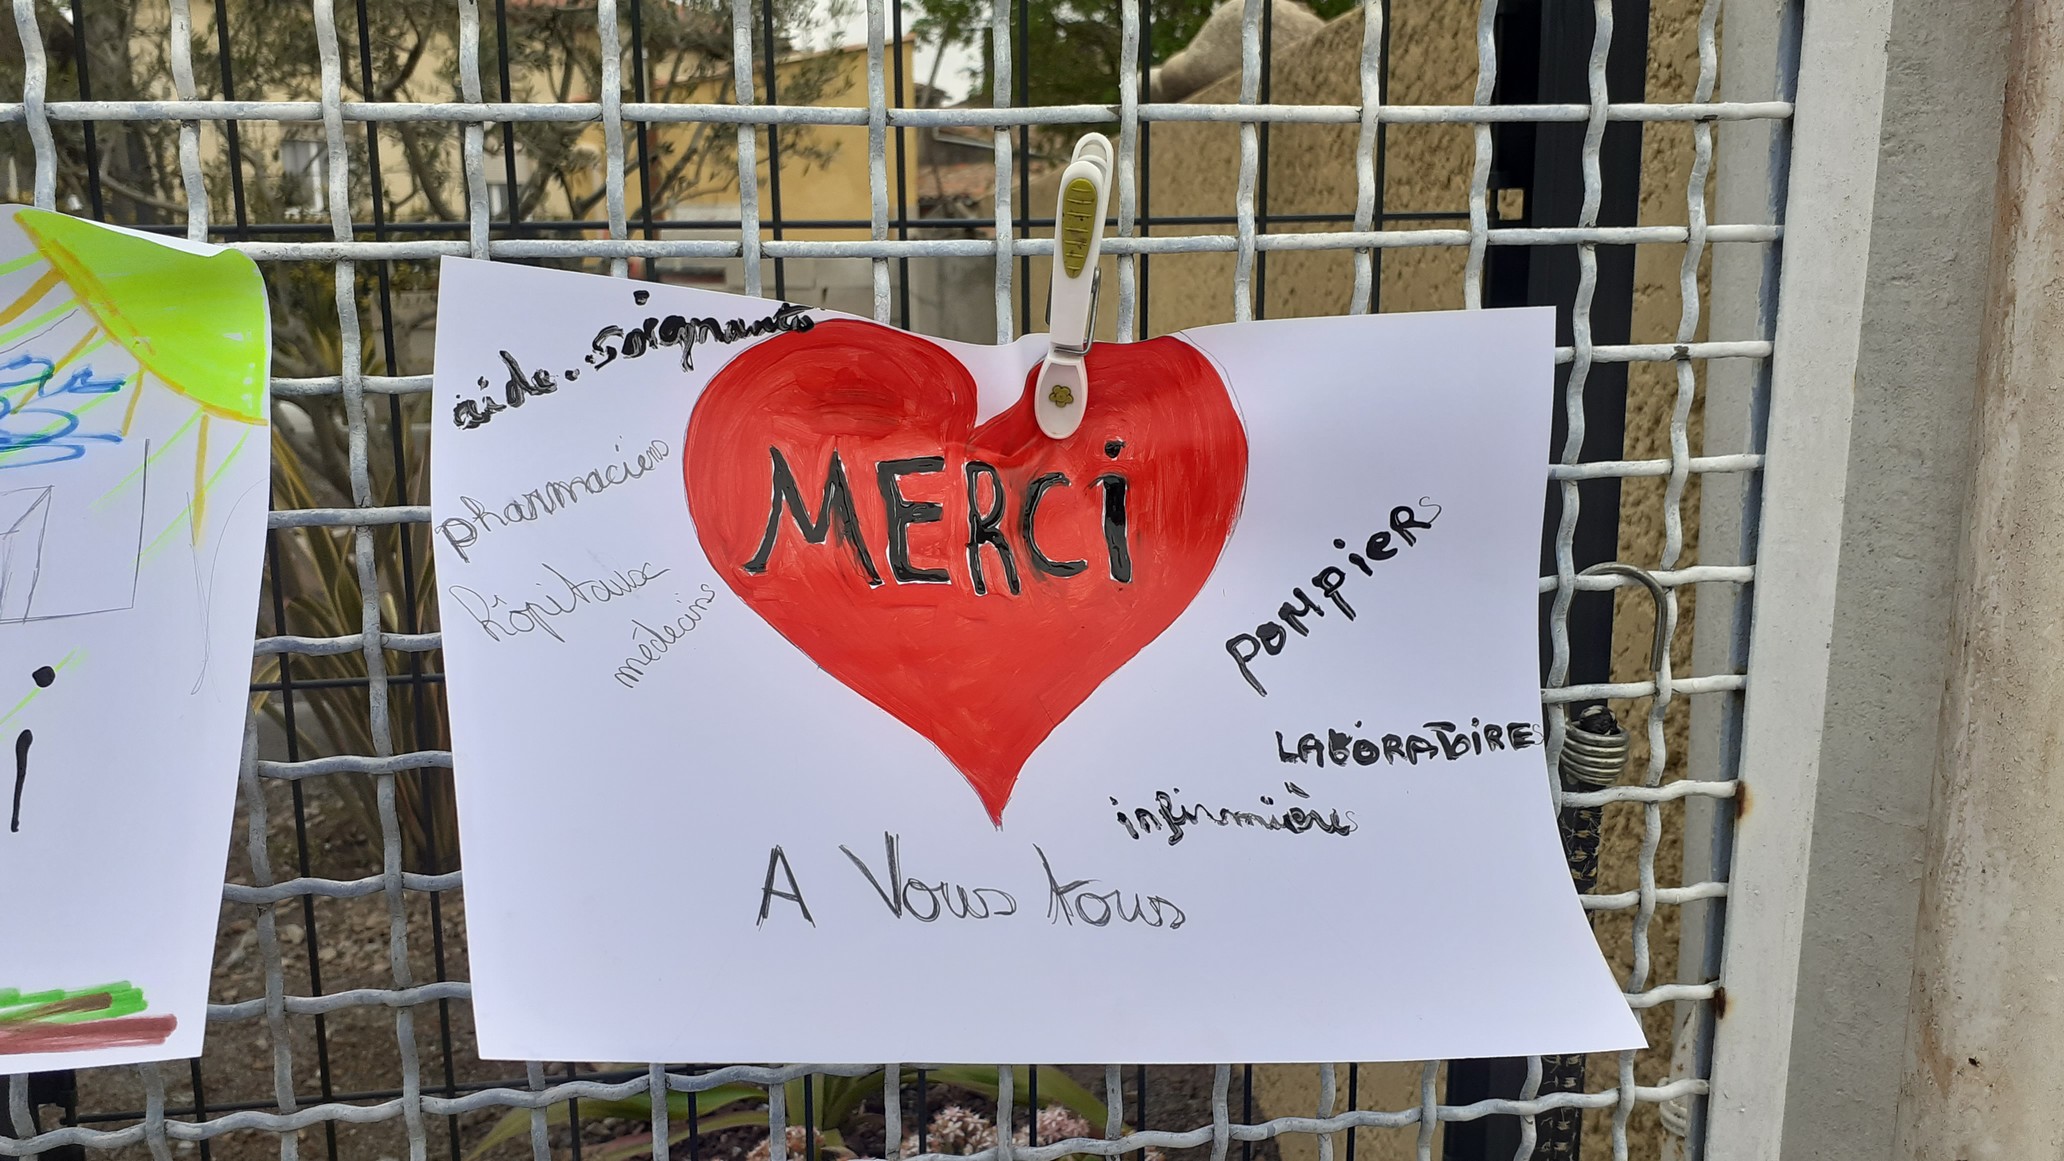 aide-soignants
pharmaciens
hôpitaux
médecins
MERCi
POMPiERs
LABORATOIREs
infirmières
A Vous tous